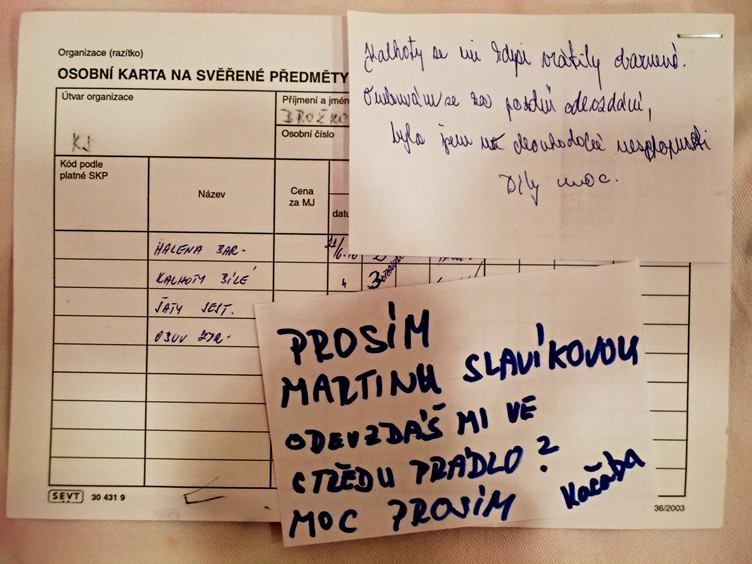 Organizace (razítko)
OSOBNÍ KARTA NA SVĚŘENÉ PŘEDMĚTY
Útvar organizace
Příjmení a jméno
KJ
Osobní číslo
Kód podle
platné SKP
Název
Cena
za MJ
datu
HALENA BAR.
KALHOTY BÍLÉ
ŠATY SEST.
OBUV ZDR.
SEVT 30 431 9
36/2003
Kalhoty se mi kdysi vrátily barevné.
Omlouvám se za pozdní odevzdání,
byla jsem na dlouhodobé neschopnosti
Díky moc.
PROSÍM
MARTINU SLAVÍKOVOU
ODEVZDÁŠ MI VE
STŘEDU PRÁDLO?
MOC PROSÍM Kačaba